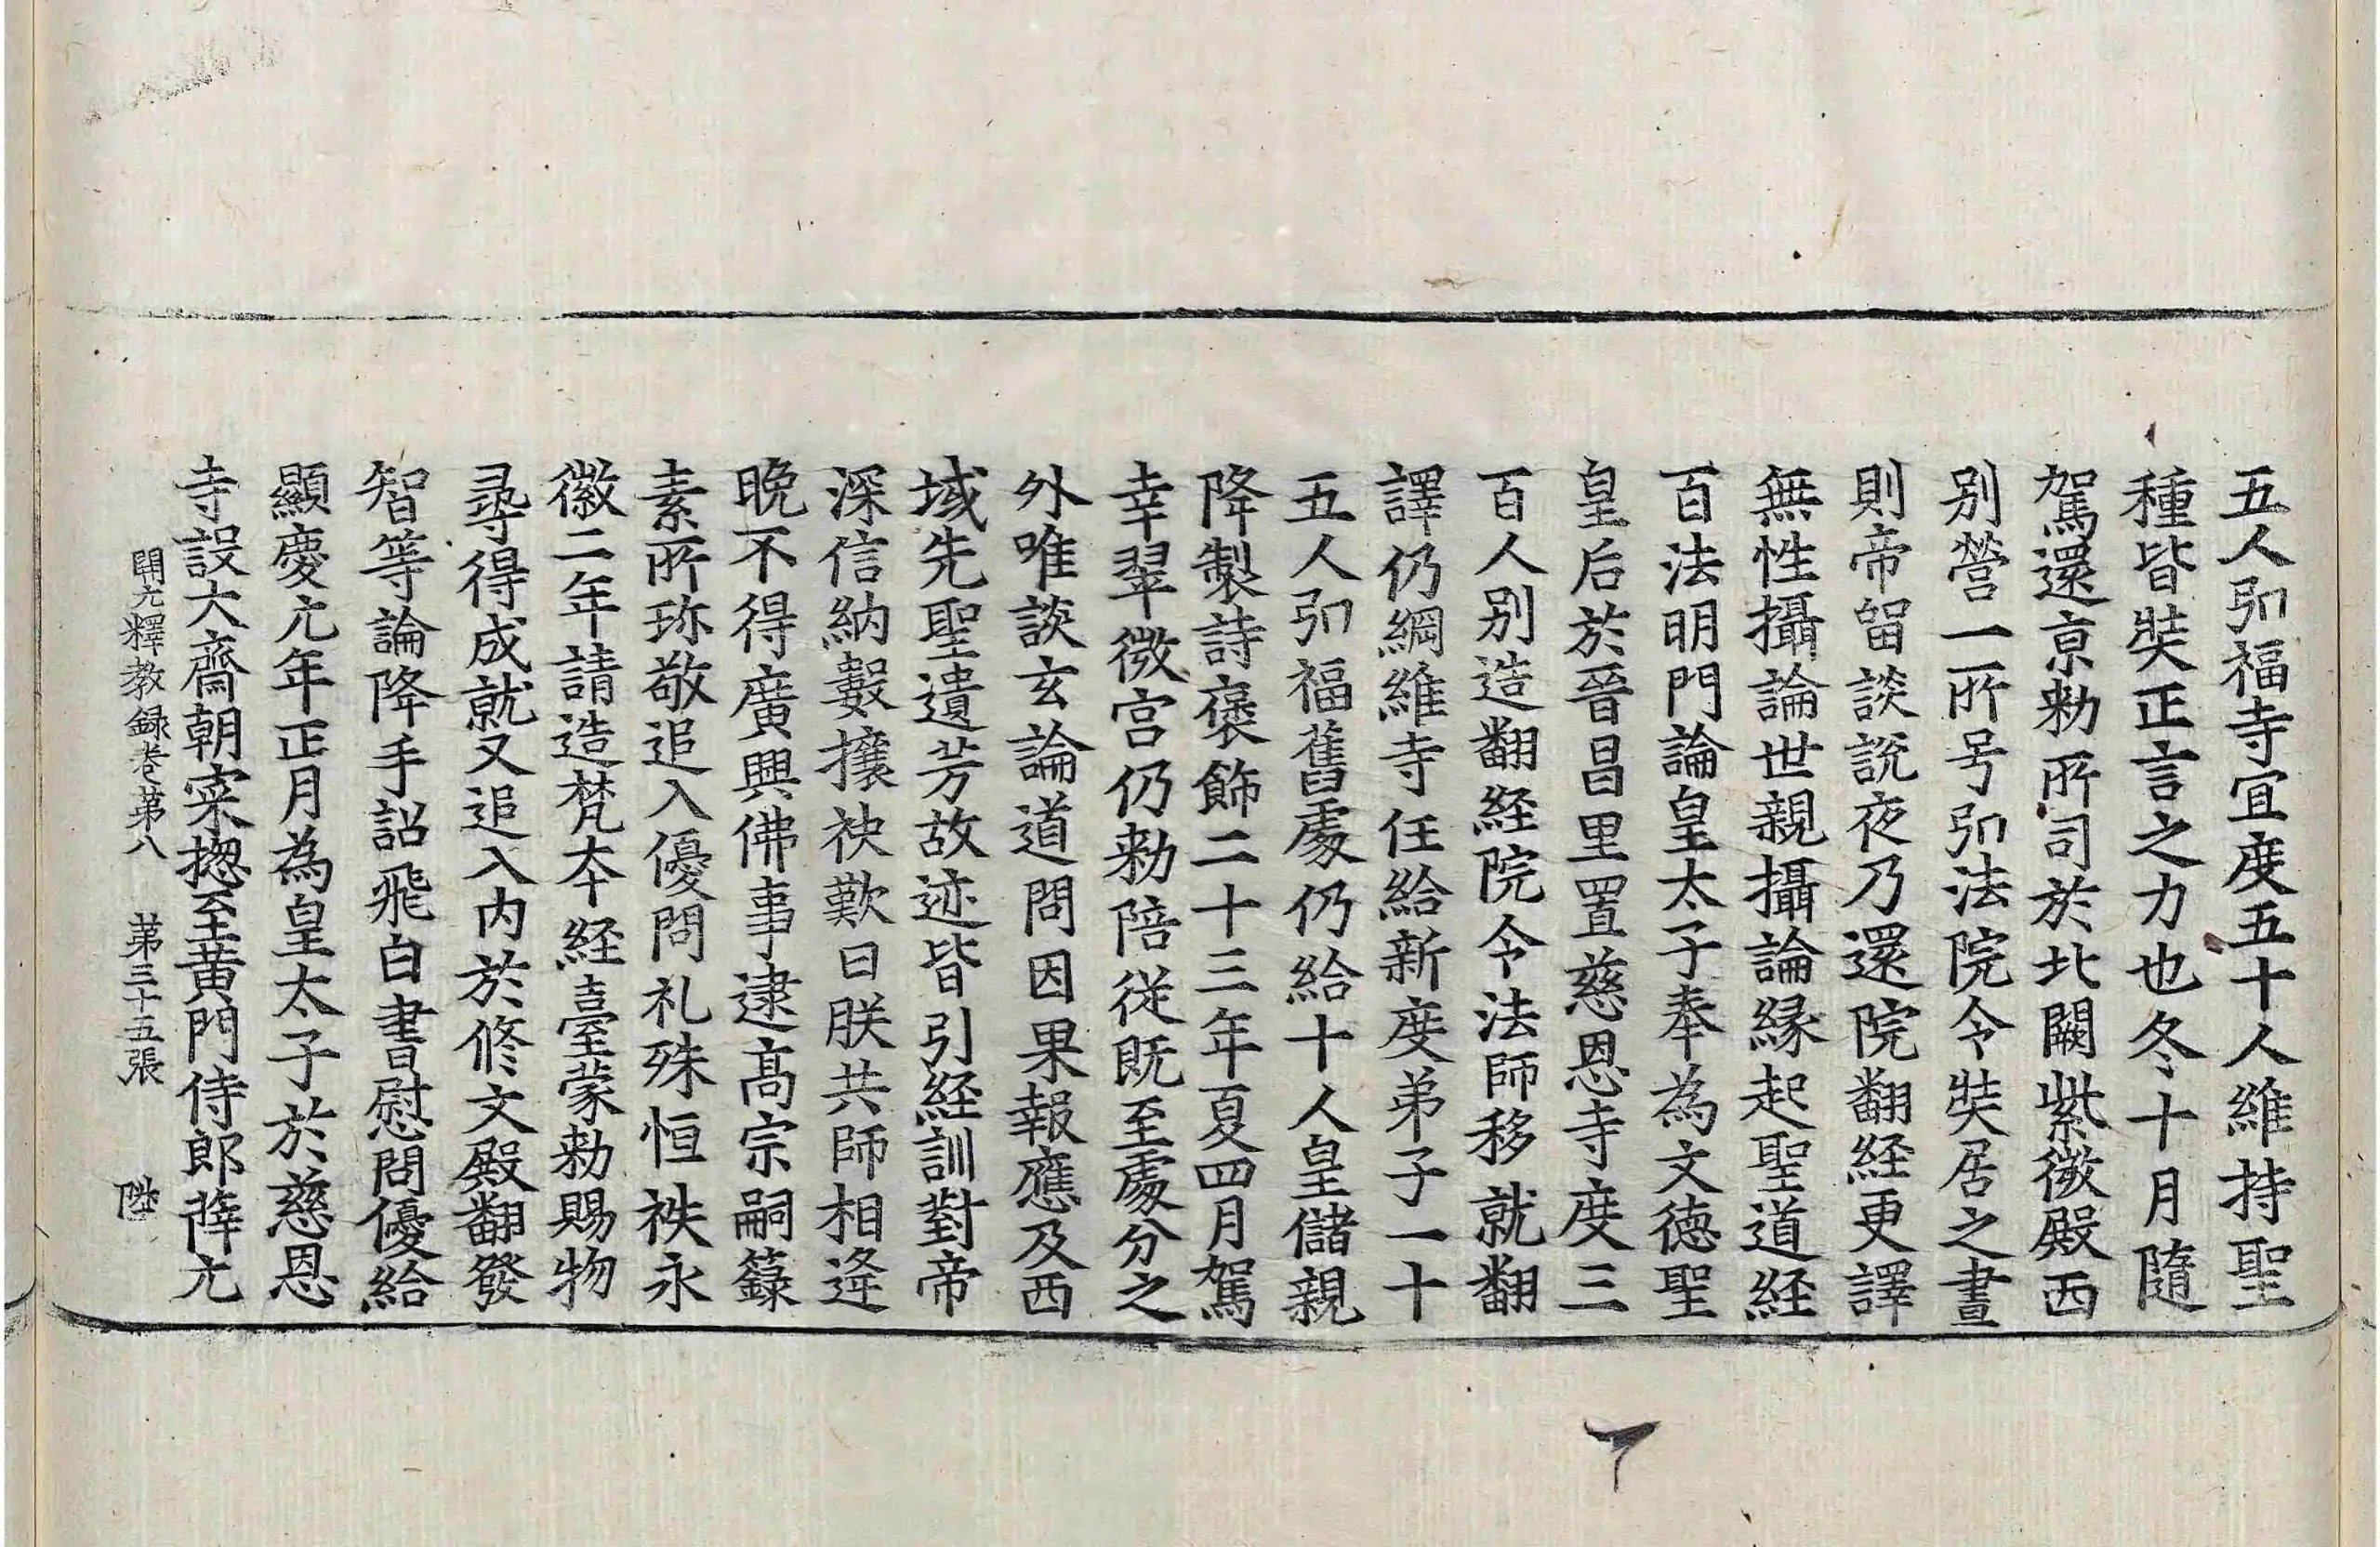 五人弘福寺宜度五十人維持聖
種皆奘正言之力也冬十月隨
駕還京勅所司於北闕紫微殿西
別營一所号弘法院令奘居之晝
則帝留談說夜乃還院翻経更譯
無性攝論世親攝論縁起聖道経
百法明門論皇太子奉為文德聖
皇后於晉昌里置慈恩寺度三
百人別造翻経院令法師移就翻
譯仍綱維寺任給新度弟子一十
五人弘福舊處仍給十人皇儲親
降製詩褒飾二十三年夏四月駕
幸翠微宮仍勅陪從既至處分之
外唯談玄論道問因果報應及西
域先聖遺芳故迹皆引経訓對帝
深信納數攘袂歎曰朕共師相逢
晚不得廣興佛事逮高宗嗣籙
素所珎敬追入優問礼殊恒袟永
徽二年請造梵夲経臺蒙勅賜物
尋得成就又追入内於修文殿翻發
智等論降手詔飛白書慰問優給
顯慶元年正月為皇太子於慈恩
寺設大齋朝寀揔至黄門侍郎薛元
開元釋教録卷第八 第三十五張 陞